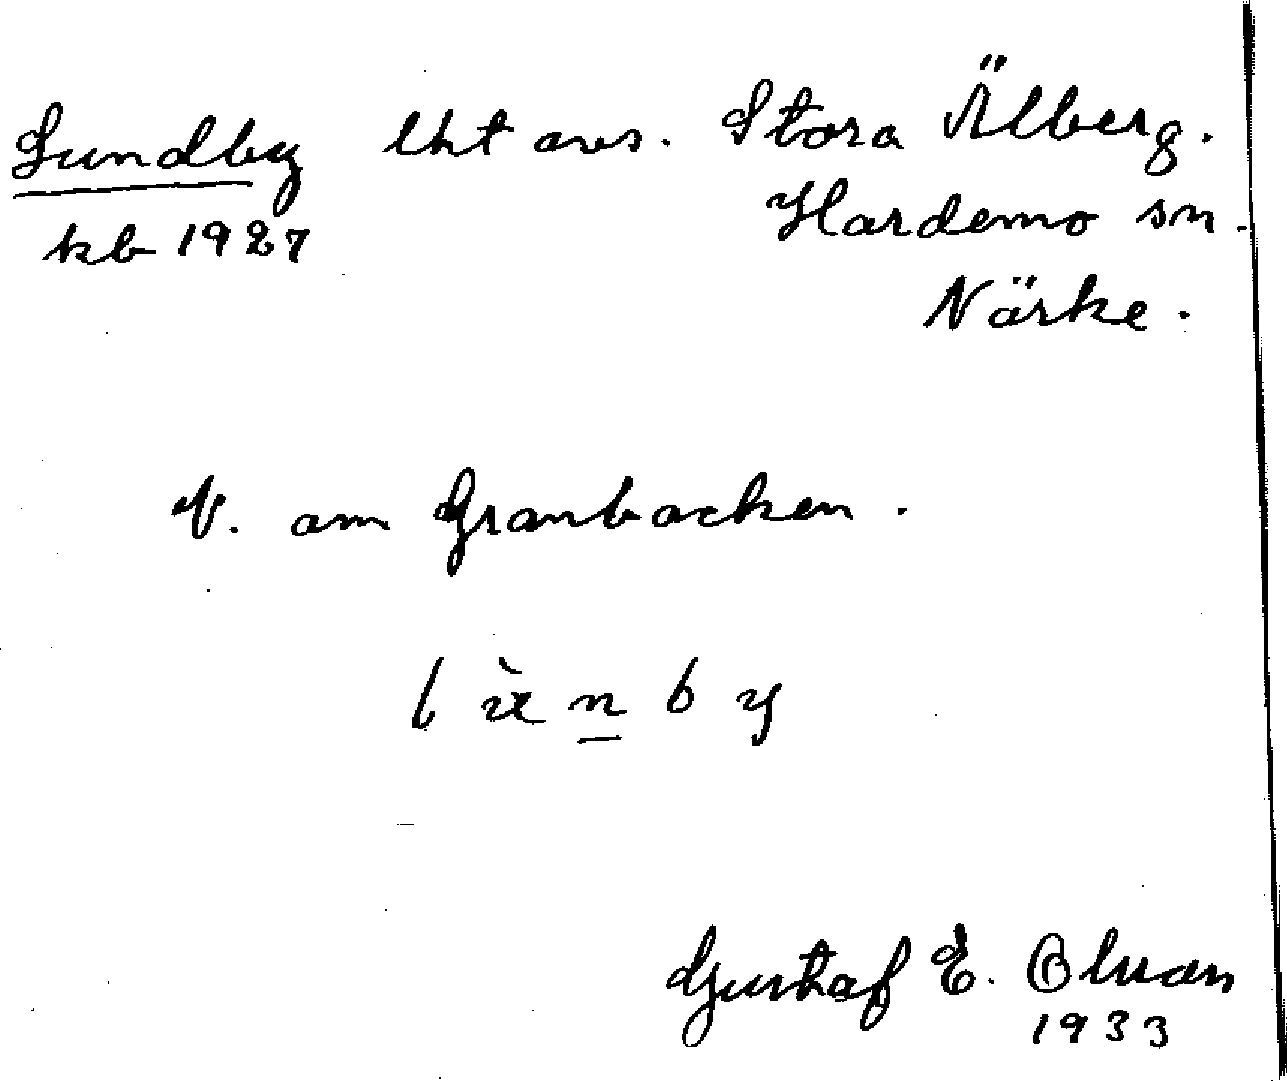 Lundby lht avs. Stora Älberg.
kb 1927 Hardemo sn.
Närke.
V. om Granbacken.
Gustaf E. Olson
1933